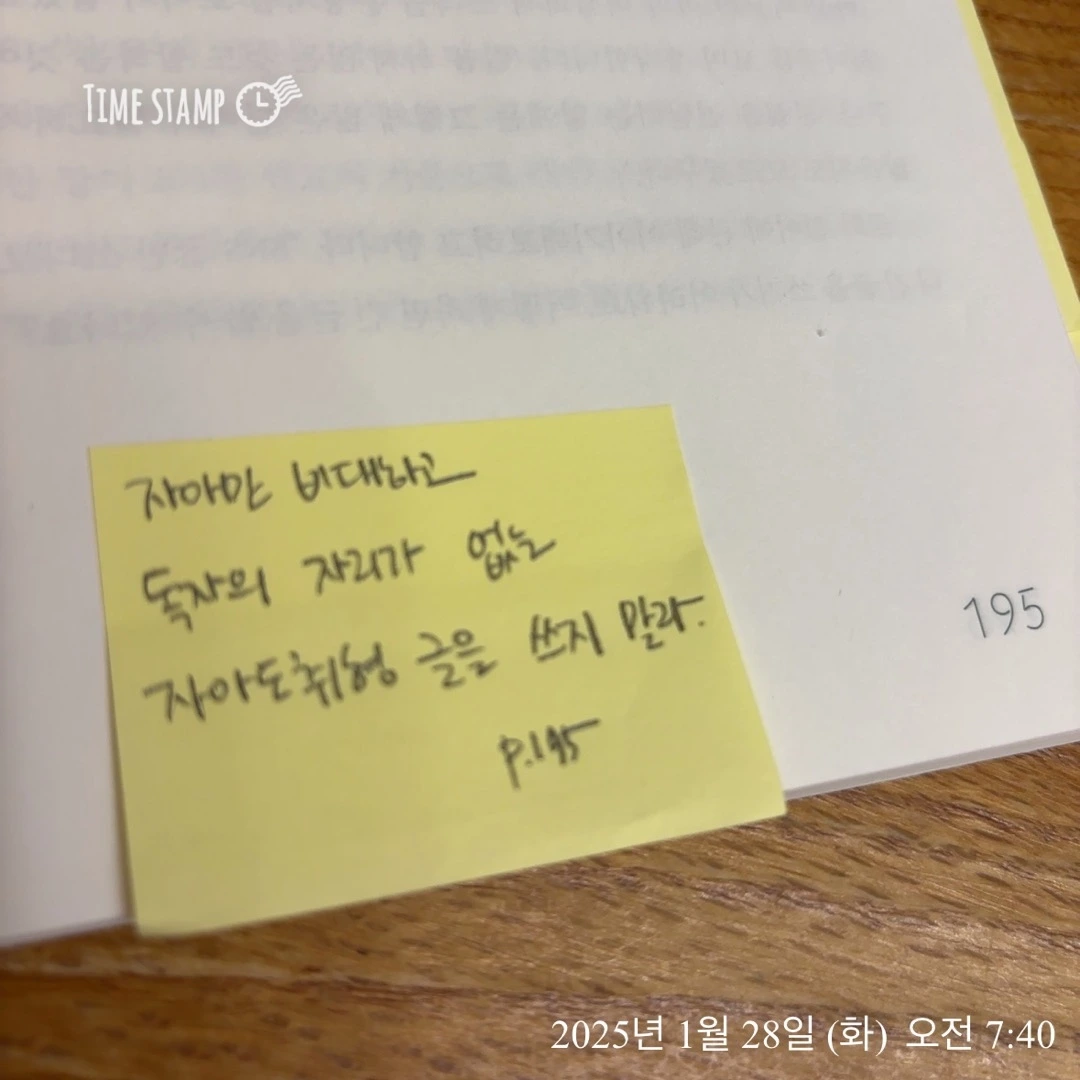 TIME STAMP
자아만 비대하고
독자의 자리가 없는
자아도취형 글을 쓰지 말라.
p.195
195
2025년 1월 28일 (화) 오전 7:40